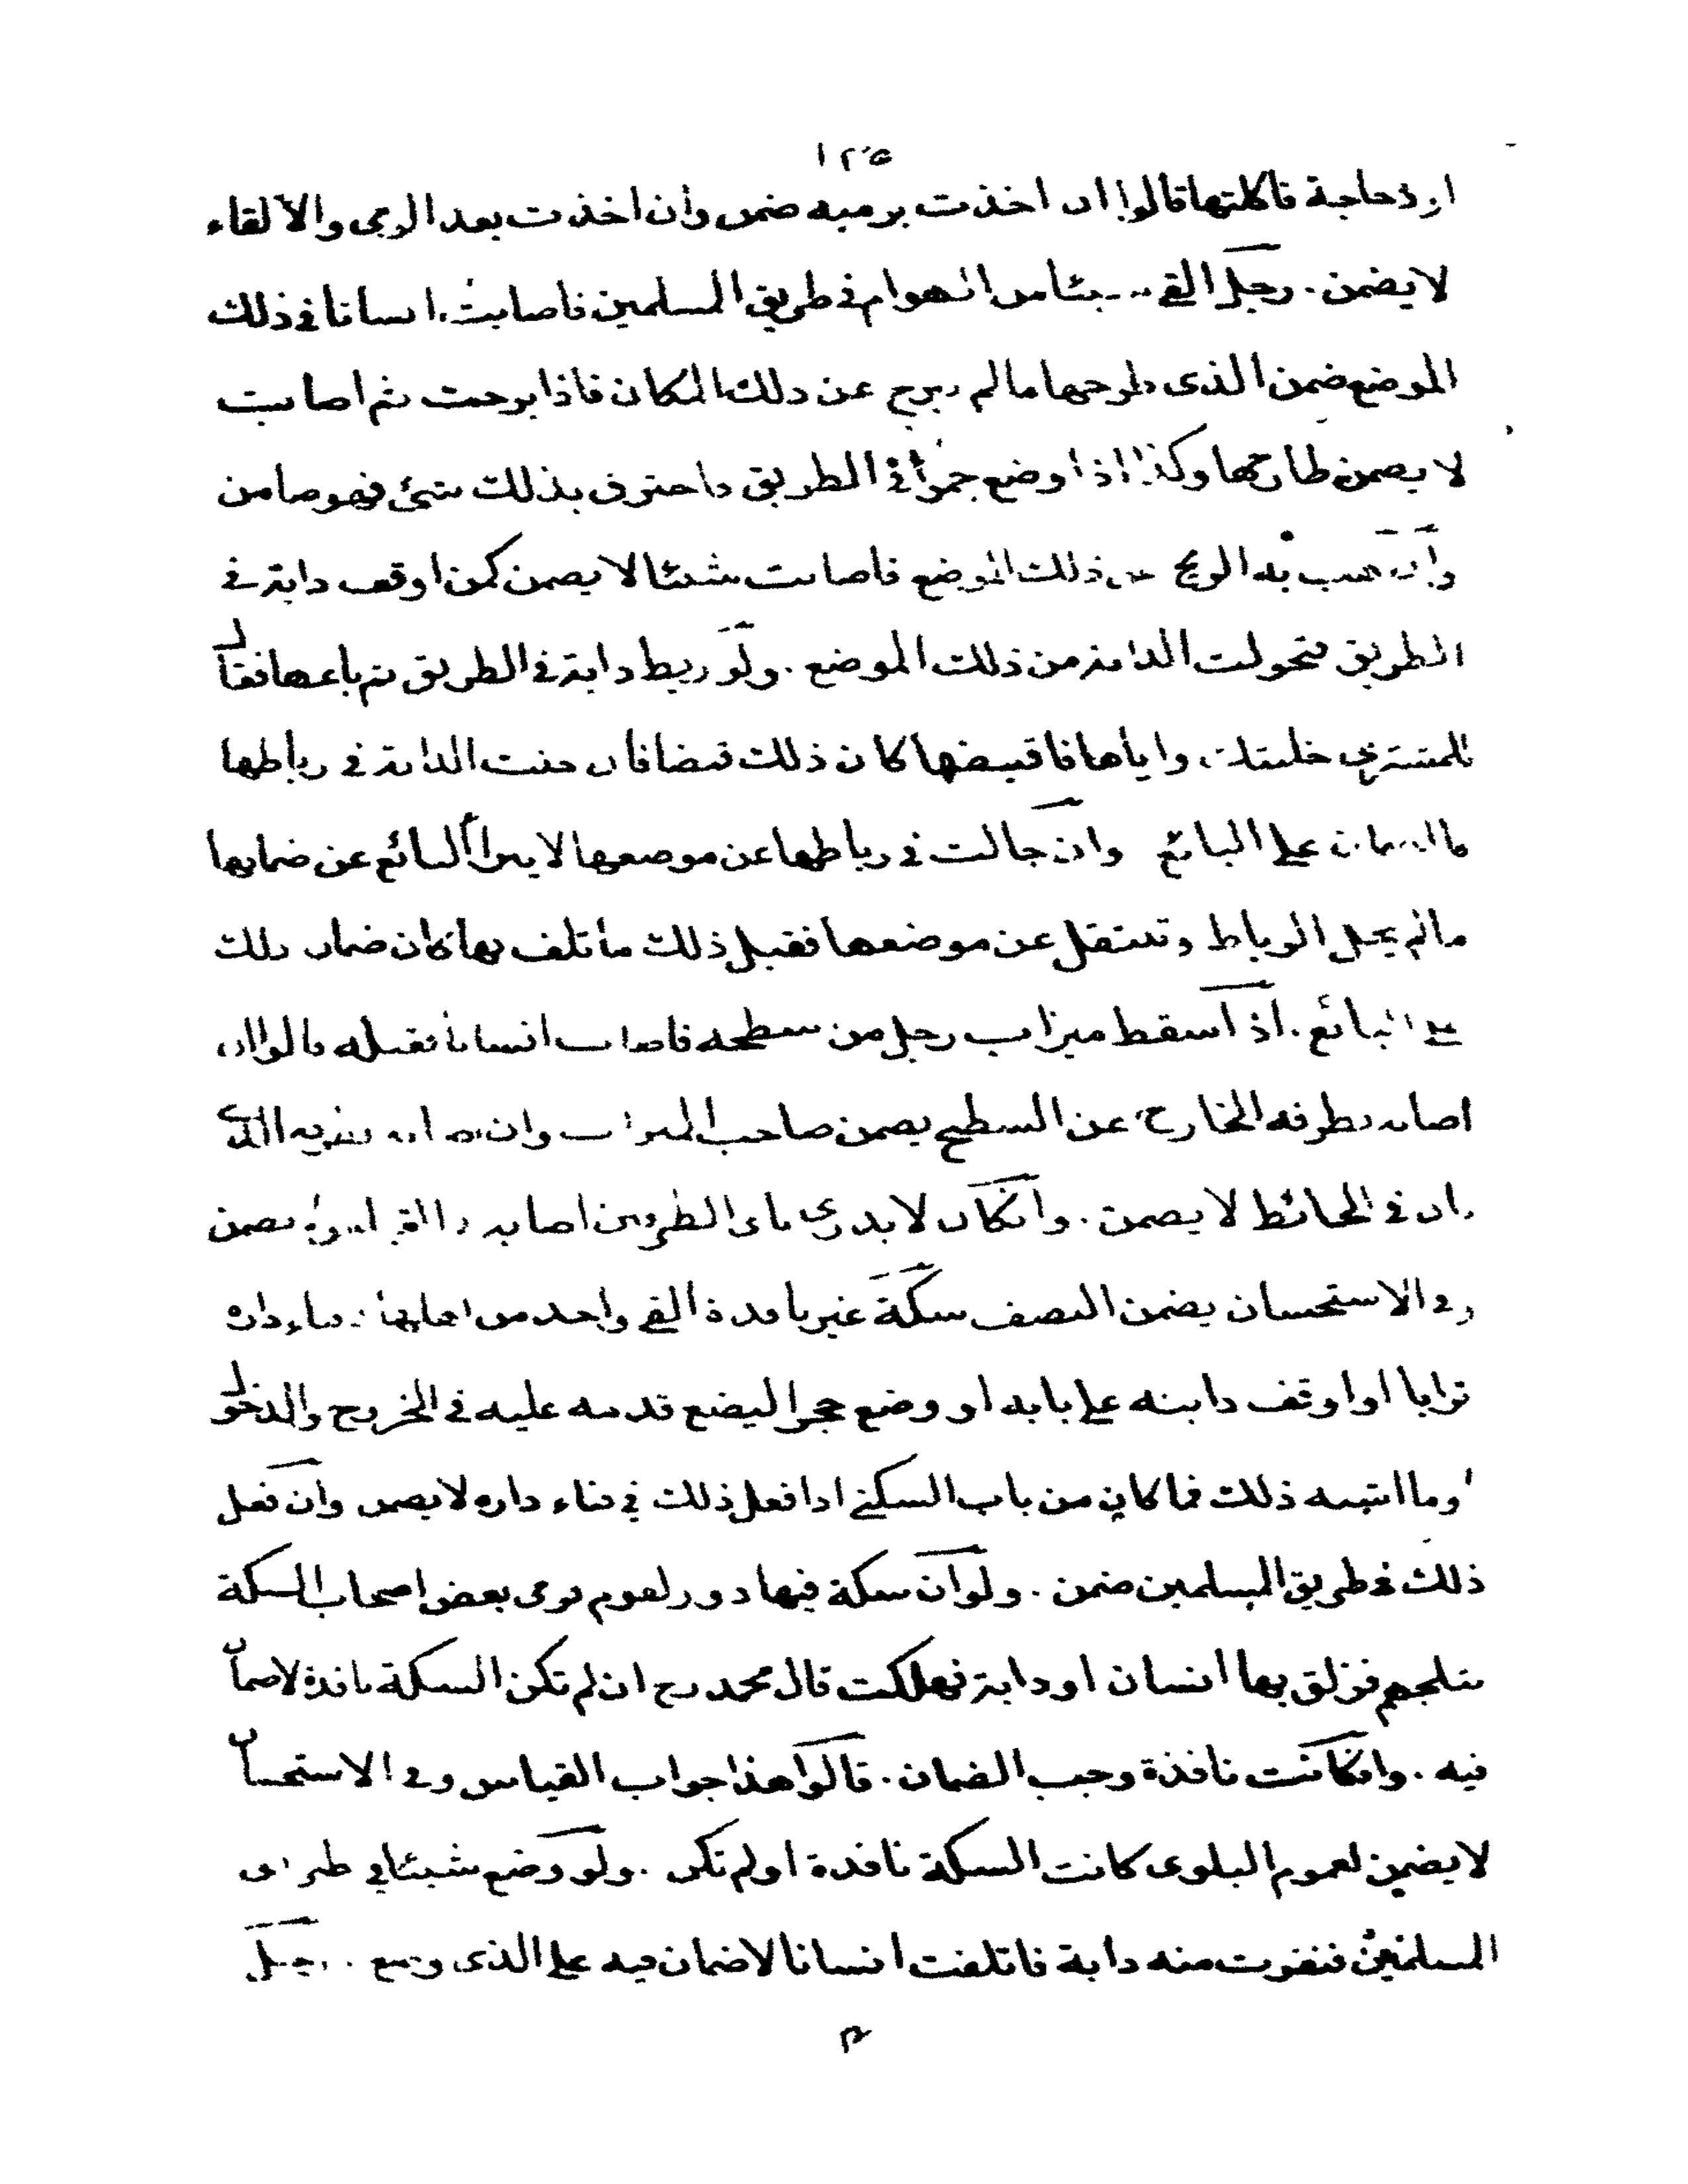 ١٢٥
او دجاجة فاكلتها قالوا ان اخذت برميه ضمن وان اخذت بعد الرمى والالقاء
لا يضمن . رجل القى شيئا من الهوام فى طريق المسلمين فاصابت انسانا فى ذلك
الموضع ضمن الذى طرحها مالم يبرح عن ذلك المكان فاذا برحت ثم اصابت
لا يضمن طارحها وكذا اذا وضع جمرا فى الطريق فاحترق بذلك شئ فهو ضامن
وان هبت به الريح عن ذلك الموضع فاصابت شيئا لا يضمن كمن اوقف دابة فى
الطريق فتحولت الدابة من ذلك الموضع . ولو ربط دابة فى الطريق ثم باعها فقال
للمشترى خليتك واياها فاقبضها كان ذلك قبضا فان جنت الدابة فى رباطها
فالضمان على البائع وان جالت فى رباطها عن موضعها لا يبرأ البائع عن ضمانها
مالم يحل الرباط وتنتقل عن موضعها فقبل ذلك ما تلف بها كان ضمان ذلك
على البائع . اذا سقط ميزاب رجل من سطحه فاصاب انسانا فقتله قالوا ان
اصابه بطرفه الخارج عن السطح يضمن صاحب الميزاب وان اصابه بطرفه الذى
كان فى الحائط لا يضمن . وانكان لا يدرى باى الطرفين اصابه فالقياس ان يضمن
وفى الاستحسان يضمن النصف سكة غير نافذة القى واحد من اهلها بفناء داره
ترابا او اوقف دابته على بابه او وضع حجرا ليضع قدمه عليه فى الخروج والدخول
وما اشبه ذلك فما كان من باب السكنى اذا فعل ذلك فى فناء داره لا يضمن وان فعل
ذلك فى طريق المسلمين ضمن . ولو ان سكة فيها دور لقوم فرمى بعض اصحاب السكة
بثلجهم فزلق بها انسان او دابة فهلكت قال محمد رح ان لم تكن السكة نافذة لا ضمان
فيه . وانكانت نافذة وجب الضمان . قالوا هذا جواب القياس وفى الاستحسان
لا يضمن لعموم البلوى كانت السكة نافذة او لم تكن . ولو وضع شيئا فى طريق
المسلمين فنفرت منه دابة فاتلفت انسانا لا ضمان فيه على الذى وضع . رجل